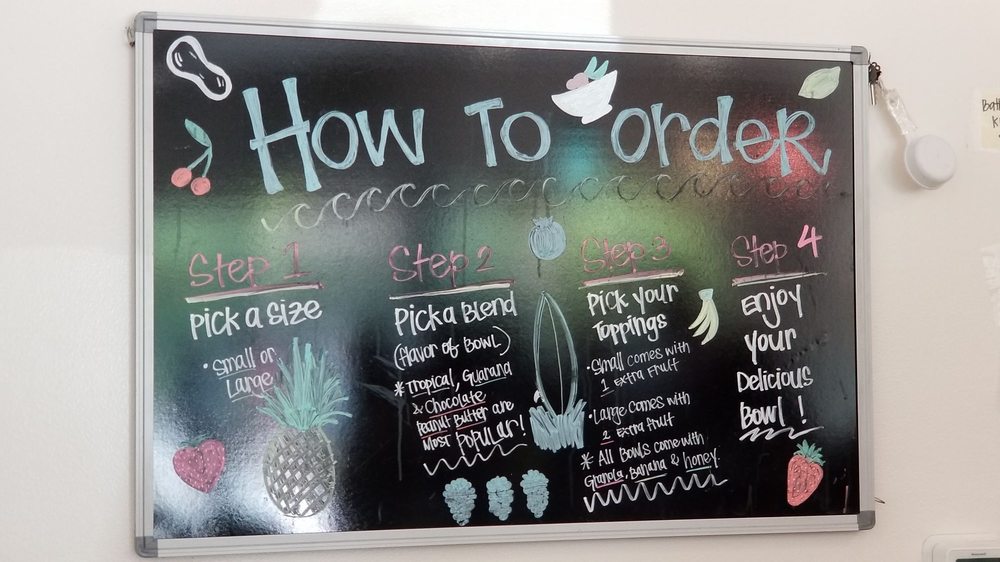 How To Order
Step 1
Pick a Size
• Small or
Large
Step 2
Pick a Blend
(flavor of Bowl)
* Tropical, Guarana
& Chocolate
Peanut Butter are
Most Popular!
Step 3
Pick Your
Toppings
• Small comes with
1 Extra Fruit
• Large comes with
2 Extra Fruit
* All Bowls come with
Granola, Banana & honey.
Step 4
Enjoy
Your
Delicious
Bowl!